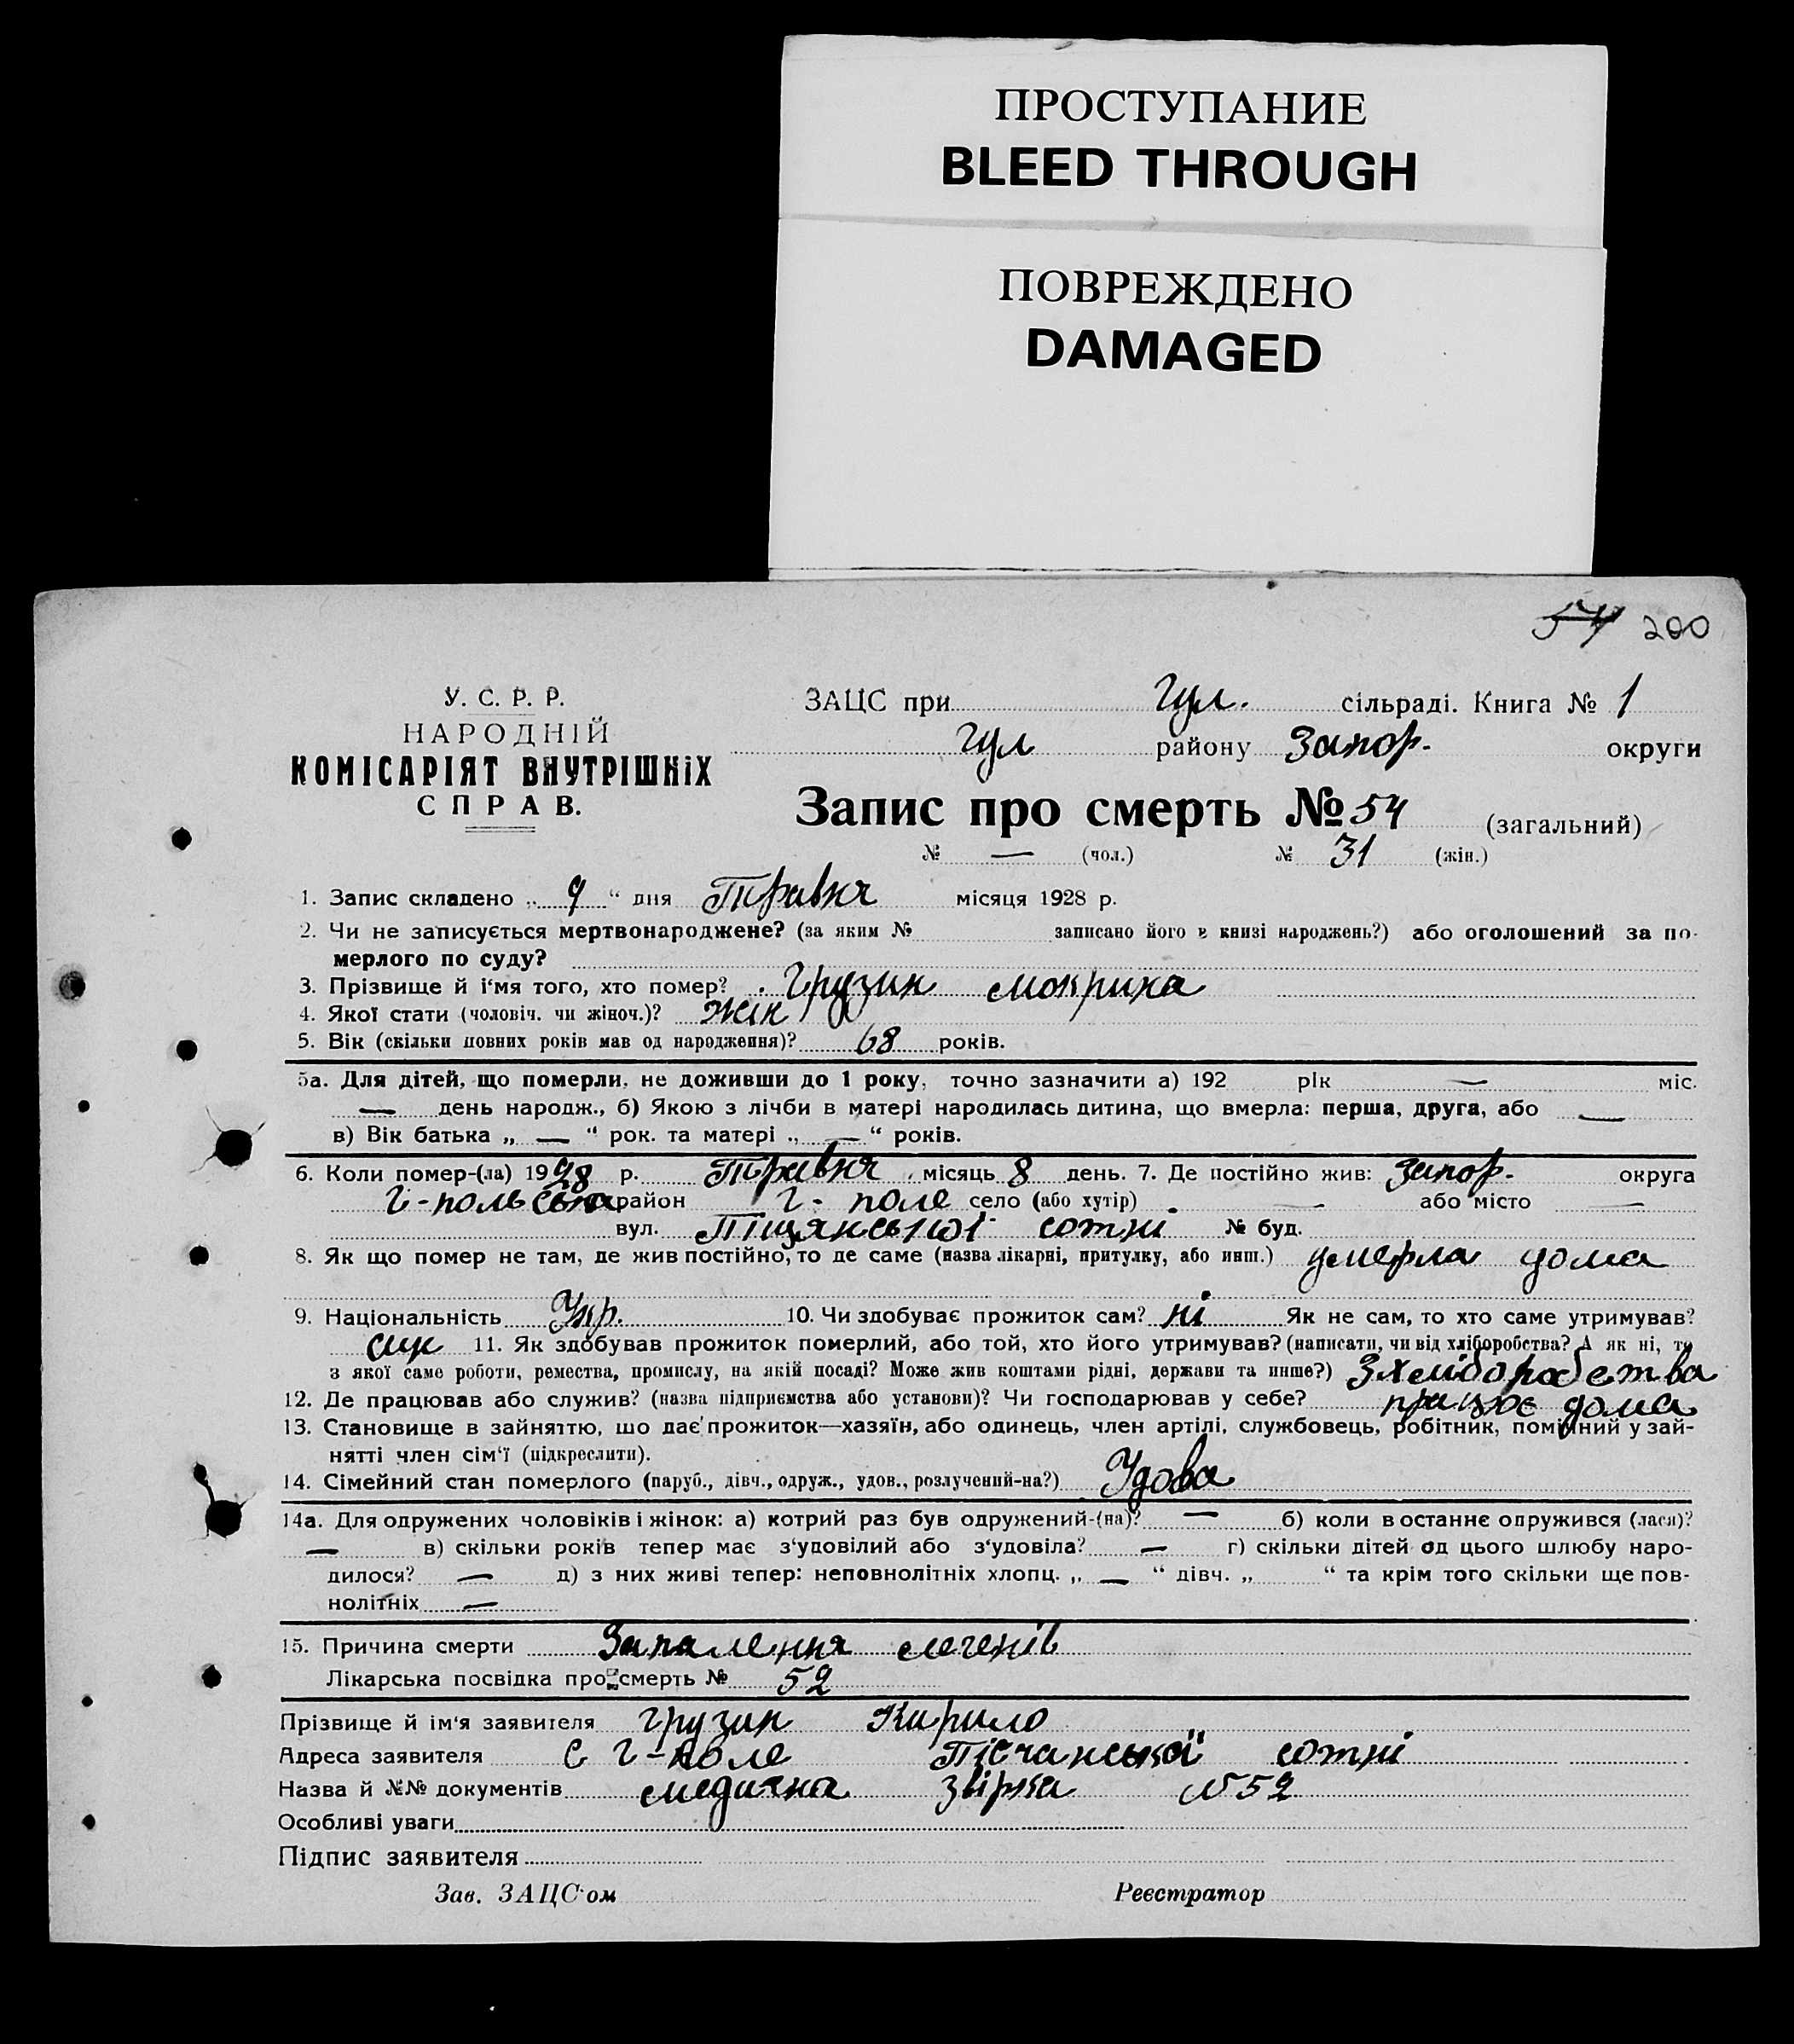 ПРОСТУПАНИЕ
BLEED THROUGH
ПОВРЕЖДЕНО
DAMAGED
54 200
У. С. Р. Р.
НАРОДНІЙ
КОМІСАРІЯТ ВНУТРІШНІХ
СПРАВ.
ЗАЦС при Гул. сільраді. Книга № 1
Гул району Запор. округи
Запис про смерть № 54 (загальний)
№ — (чол.) № 31 (жін.)
1. Запис складено „ 9 “ дня Травня місяця 1928 р.
2. Чи не записується мертвонароджене? (за яким № записано його в книзі народжень?) або оголошений за по-
мерлого по суду?
3. Прізвище й і‘мя того, хто помер? Грузин Мокрина
4. Якої стати (чоловіч. чи жіноч.)? Жін
5. Вік (скільки повних років мав од народження)? 68 років.
5а. Для дітей, що померли, не доживши до 1 року, точно зазначити а) 192 рік — міс.
— день народж., б) Якою з лічби в матері народилась дитина, що вмерла: перша, друга, або —
в) Вік батька „ — “ рок. та матері „ — “ років.
6. Коли помер-(ла) 1928 р. Травня місяць 8 день. 7. Де постійно жив: Запор. округа
Г-польського район Г-поле село (або хутір) — або місто —
вул. Піщанської сотні № буд.
8. Як що помер не там, де жив постійно, то де саме (назва лікарні, притулку, або инш.) умерла дома
9. Національність Укр. 10. Чи здобуває прожиток сам? ні Як не сам, то хто саме утримував?
син 11. Як здобував прожиток померлий, або той, хто його утримував? (написати, чи від хліборобства? А як ні, то
з якої саме роботи, ремества, промислу, на якій посаді? Може жив коштами рідні, держави та инше?) З хліборобства
12. Де працював або служив? (назва підприємства або установи)? Чи господарював у себе? працює дома
13. Становище в зайняттю, шо дає прожиток—хазяїн, або одинець, член артілі, службовець, робітник, помічний у зай-
нятті член сім‘ї (підкреслити).
14. Сімейний стан померлого (паруб., дівч., одруж., удов., розлучений-на?) Удова
14а. Для одружених чоловіків і жінок: а) котрий раз був одружений-(на)? — б) коли в останнє одружився (лася)?
— в) скільки років тепер має з‘удовілий або з‘удовіла? — г) скільки дітей од цього шлюбу наро-
дилося? — д) з них живі тепер: неповнолітніх хлопц. „ — “ дівч. „ “ та крім того скільки ще пов-
нолітніх —
15. Причина смерти Запалення легенів
Лікарська посвідка про смерть № 52
Прізвище й ім‘я заявителя Грузин Кирило
Адреса заявителя С Г-поле Пісчанської сотні
Назва й №№ документів медична звірка № 52
Особливі уваги
Підпис заявителя
Зав. ЗАЦС‘ом Реєстратор